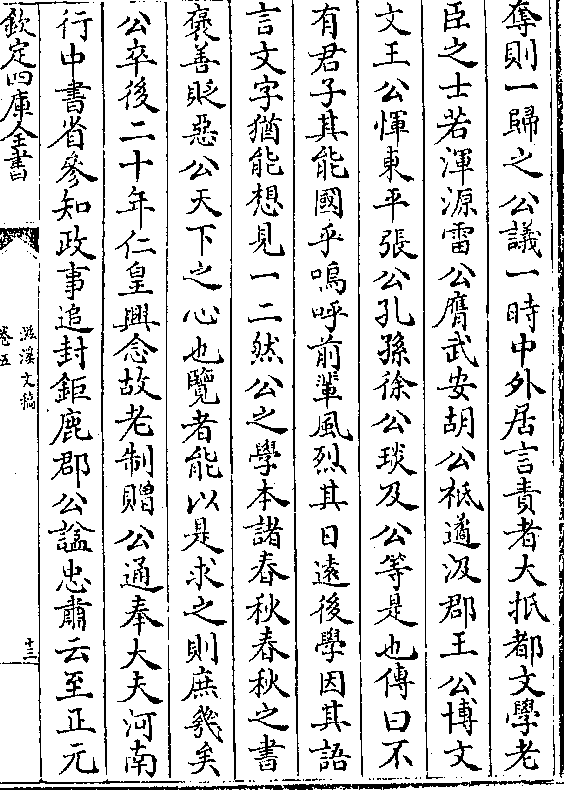 奪則一歸之公議一時中外居言責者大抵都文學老
臣之士若渾源雷公膺武安胡公祗遹汲郡王公博文
文王公惲東平張公孔孫徐公琰及公等是也傳曰不
有君子其能國乎嗚呼前輩風烈其日遠後學因其語
言文字猶能想見一二然公之學本諸春秋春秋之書
褒善貶惡公天下之心也覽者能以是求之則庶幾矣
公卒後二十年仁皇興念故老制贈公通奉大夫河南
行中書省參知政事追封鉅鹿郡公諡忠肅云至正元
欽定四庫全書
滋溪文稿
卷五
十三